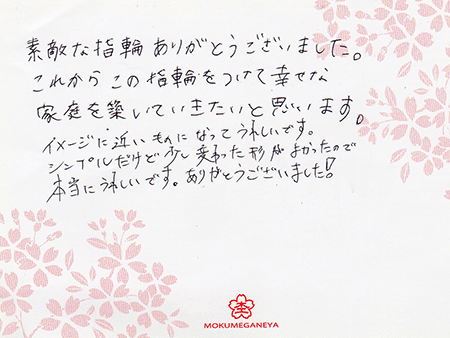 素敵な指輪ありがとうございました。
これからこの指輪をつけて幸せな
家庭を築いていきたいと思います。
イメージに近いものになってうれしいです。
シンプルだけど少し変わった形がよかったので
本当にうれしいです。ありがとうございました!
MOKUMEGANEYA